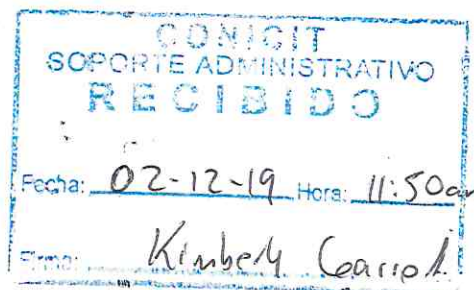 CONICIT
SOPORTE ADMINISTRATIVO
RECIBIDO
Fecha: 02-12-19 Hora: 11:50am
Firma: Kimberly